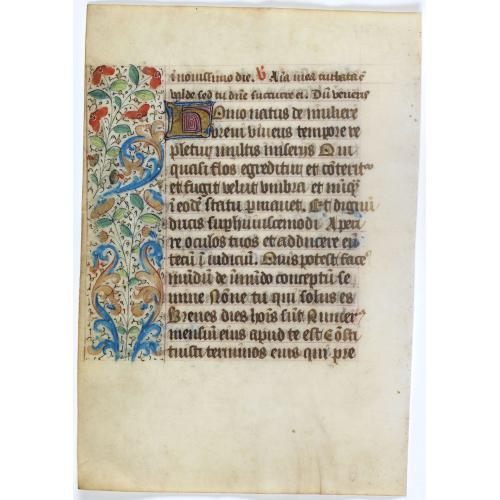 i nouissimo die. V Aīa mea turbata ē
valde sed tu dn̄e succurre ei. Dū veneris
Homo natus de muliere
breui viuens tempore re
pletur multis miserijs Qui
quasi flos egreditur et cōterit᷑
et fugit velut vmbra et nūq̄
ī eodē statu permanet. Et dignū
ducis suꝑ huiuscemodi Aperi
re oculos tuos et adducere eū
tecū ī iudiciū. Quis potest face᷑
mūdū de īmūdo conceptū se
mine Nōne tu qui solus es
Breues dies hoīs sūt Numer᷑
mensiū eius apud te est Cōsti
tuisti terminos eius qui pre